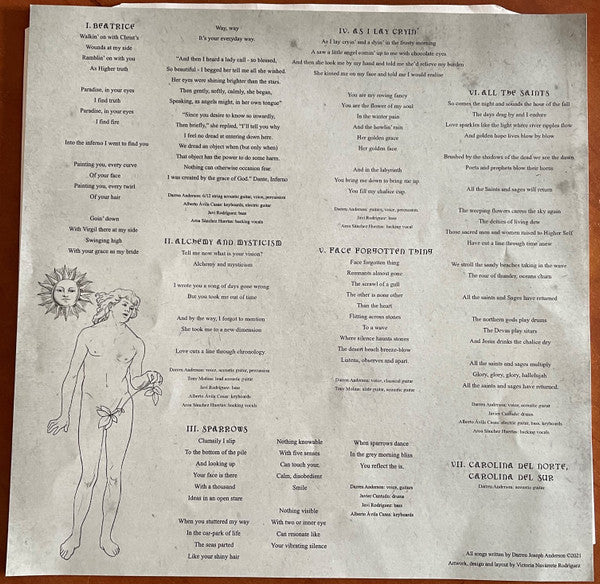 I. BEATRICE
Walkin' on with Christ's
Wounds at my side
Ramblin' on with you
As Higher truth
Paradise, in your eyes
I find truth
Paradise, in your eyes
I find fire
Into the inferno I went to find you
Painting you, every curve
Of your face
Painting you, every twirl
Of your hair
Goin' down
With Virgil there at my side
Swinging high
With your grace as my bride
Way, way
It's your everyday way.
"And then I heard a lady call - so blessed,
So beautiful - I begged her tell me all she wished.
Her eyes were shining brighter than the stars.
Then gently, softly, calmly, she began,
Speaking, as angels might, in her own tongue"
"Since you desire to know so inwardly,
Then briefly," she replied, "I'll tell you why
I feel no dread at entering down here.
We dread an object when (but only when)
That object has the power to do some harm.
Nothing can otherwise occasion fear.
I was created by the grace of God." Dante, Inferno
Darren Anderson: 6/12 string acoustic guitar, voice, percussion
Alberto Ávila Casas: keyboards, electric guitar
Javi Rodríguez: bass
Aroa Sánchez Huertas: backing vocals
II. ALCHEMY AND MYSTICISM
Tell me now what is your vision?
Alchemy and mysticism
I wrote you a song of days gone wrong
But you took me out of time
And by the way, I forgot to mention
She took me to a new dimension
Love cuts a line through chronology.
Darren Anderson: voice, acoustic guitar, percussion
Tony Molina: lead acoustic guitar
Javi Rodríguez: bass
Alberto Ávila Casas: keyboards
Aroa Sánchez Huertas: backing vocals
III. SPARROWS
Clumsily I slip
To the bottom of the pile
And looking up
Your face is there
With a thousand
Ideas in an open stare
When you stuttered my way
In the car-park of life
The seas parted
Like your shiny hair
Nothing knowable
With five senses
Can touch your
Calm, disobedient
Smile
Nothing visible
With two or inner eye
Can resonate like
Your vibrating silence
When sparrows dance
In the grey morning bliss
You reflect the is.
Darren Anderson: voice, guitars
Javier Custudio: drums
Javi Rodríguez: bass
Alberto Ávila Casas: keyboards
IV. AS I LAY CRYIN'
As I lay cryin' and a dyin' in the frosty morning
A saw a little angel comin' up to me with chocolate eyes
And then she took me by my hand and told me she'd relieve my burden
She kissed me on my face and told me I would realise
You are my roving fancy
You are the flower of my soul
In the winter pain
And the howlin' rain
Her golden grace
Her golden face
And in the labyrinth
You bring me down to bring me up
You fill my chalice cup.
Darren Anderson: guitars, voice, percussion
Javi Rodríguez: bass
Aroa Sánchez Huertas: backing vocal
V. FACE FORGOTTEN THING
Face forgotten thing
Remnants almost gone
The scrawl of a gull
The other is none other
Than the heart
Flitting across stones
To a wave
Where silence haunts stones
The desert beach breeze-blow
Listens, observes and apart.
Darren Anderson: voice, classical guitar
Tony Molina: slide guitar, acoustic guitar
VI. ALL THE SAINTS
So comes the night and sounds the hour of the fall
The days drag by and I endure
Love sparkles like the light where river ripples flow
And golden hope lives blow by blow
Brushed by the shadows of the dead we see the dawn
Poets and prophets blow their horns
All the Saints and Sages will return
The weeping flowers caress the sky again
The deities of living dew
Those sacred men and women raised to Higher Self
Have cut a line through time anew
We stroll the sandy beaches taking in the wave
The roar of thunder, oceans churn
All the saints and Sages have returned
The northern gods play drums
The Devas play sitars
And Jesus drinks the chalice dry
All the saints and Sages multiply
Glory, glory, glory, hallelujah
All the saints and Sages have returned.
Darren Anderson: voice, acoustic guitar
Javier Custudio: drums
Alberto Ávila Casas: electric guitar, bass, keyboards
Aroa Sánchez Huertas: backing vocals
VII. CAROLINA DEL NORTE,
CAROLINA DEL SUR
Darren Anderson: acoustic guitar
All songs written by Darren Joseph Anderson ©2021
Artwork, design and layout by Victoria Navarrete Rodríguez